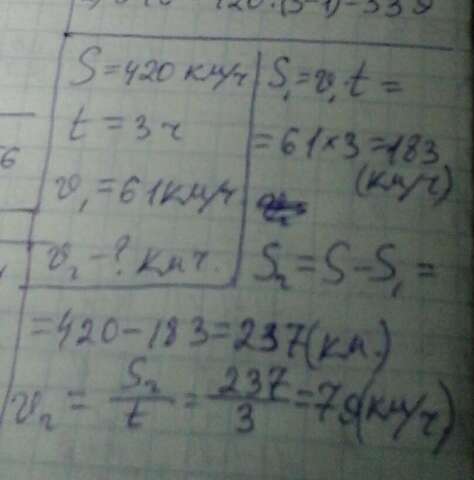 420·(3-1)-339
S=420 км/ч
t = 3ч
v₁=61км/ч
v₂-? км ч.
S₁=v₁t=
=61×3=183
(км/ч)
S₂=S-S₁=
=420-183=237(км.)
v₂ = S₂/t = 237/3 =79(км/ч)
6